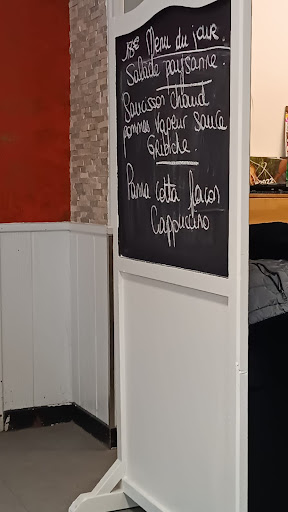 18€ Menu du jour.
Salade paysanne.
Saucisson Chaud
pommes vapeur sauce
Gribiche.
Panna cotta façon
Cappuccino